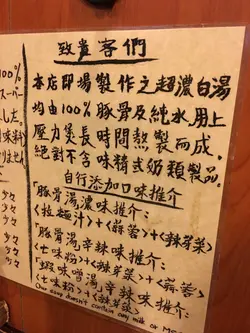 致貴客們
本店即場製作之超濃白湯
均由100%豚骨及純水,用上
壓力煲長時間熬製而成.
絕對不含味精或奶類製品.
自行添加口味推介
豚骨湯,濃味推介:
<拉麵汁>+<蒜蓉>+<辣芽菜>
豚骨湯,辛辣味推介:
<七味粉>+<辣芽菜>+<蒜蓉>
蝦味噌湯,辛辣味推介:
<七味粉>+<辣芽菜>
Our soup doesn't contain any milk or M
100%
スーパー
した。
味料
りません
少々
少々
少々
少々